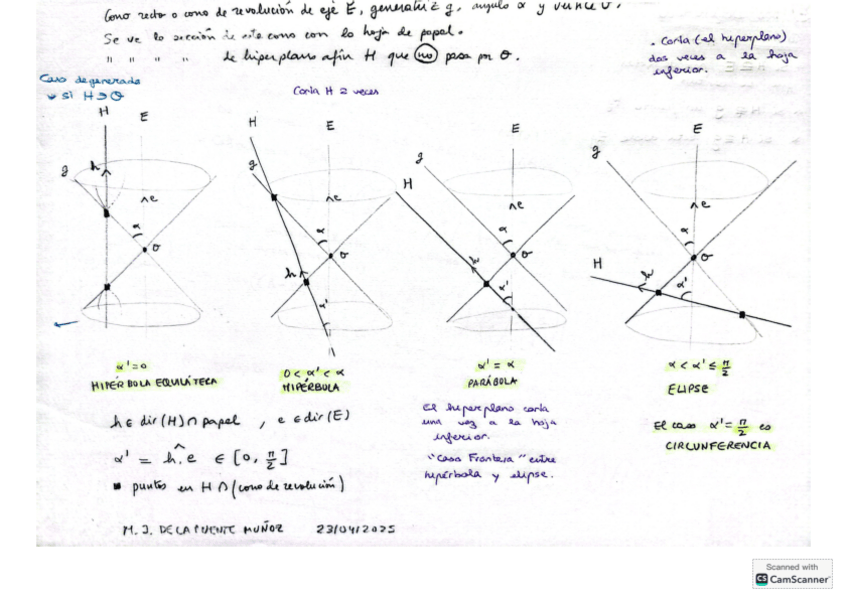 Cono recto o cono de revolución de eje E, generatriz g, angulo α y vértice O.
Se ve la sección de este cono con la hoja de papel.
" " " " de hiperplano afín H que no pasa por O.
. Corta (el hiperplano)
dos veces a la hoja
inferior.
Caso degenerado
si H∋O
Corta H 2 veces
H
E
g
h
e
α
O
H
E
g
e
α
O
h
α'
E
g
H
e
α
O
h
α'
E
g
e
α
O
H
h
α'
α'=0
HIPÉRBOLA EQUILÁTERA
0 < α' < α
HIPÉRBOLA
α' = α
PARÁBOLA
α < α' ≤ π/2
ELIPSE
El hiperplano corta
una vez a la hoja
inferior.
"Caso Frontera" entre
hipérbola y elipse.
El caso α' = π/2 es
CIRCUNFERENCIA
h ∈ dir(H) ∩ papel , e ∈ dir(E)
α' = h,e ∈ [0, π/2]
■ puntos en H ∩ (cono de revolución)
M. J. DE LA PUENTE MUÑOZ 23/04/2025
Scanned with
CS CamScanner